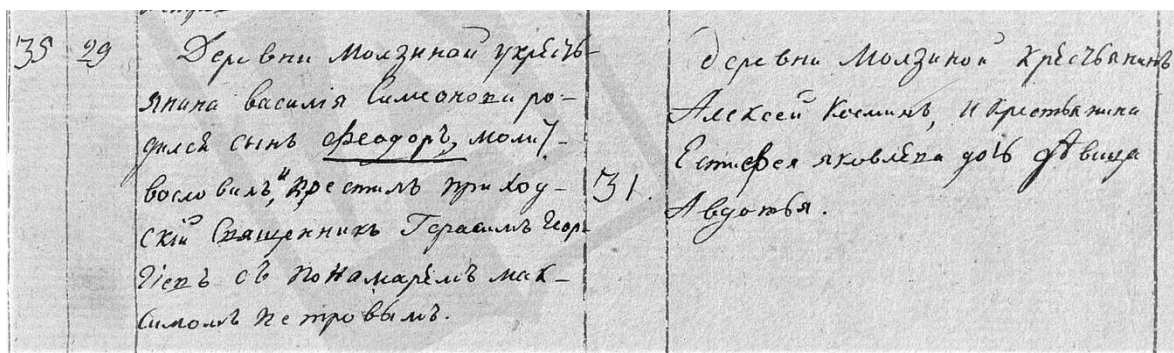 35 29 Деревни Молзиной у кресть-
янина василія Симеонова ро-
дился сынъ Феодоръ, молит-
вословилъ, и крестилъ приход-
скій Священникъ Герасимъ Геор-
гіевъ съ пономаремъ мак-
симомъ петровымъ.
31.
деревни Молзиной крестьянинъ
Алексей Косминъ, и крестьянина
Естифея яковлева дочь дѣвица
Авдотья.